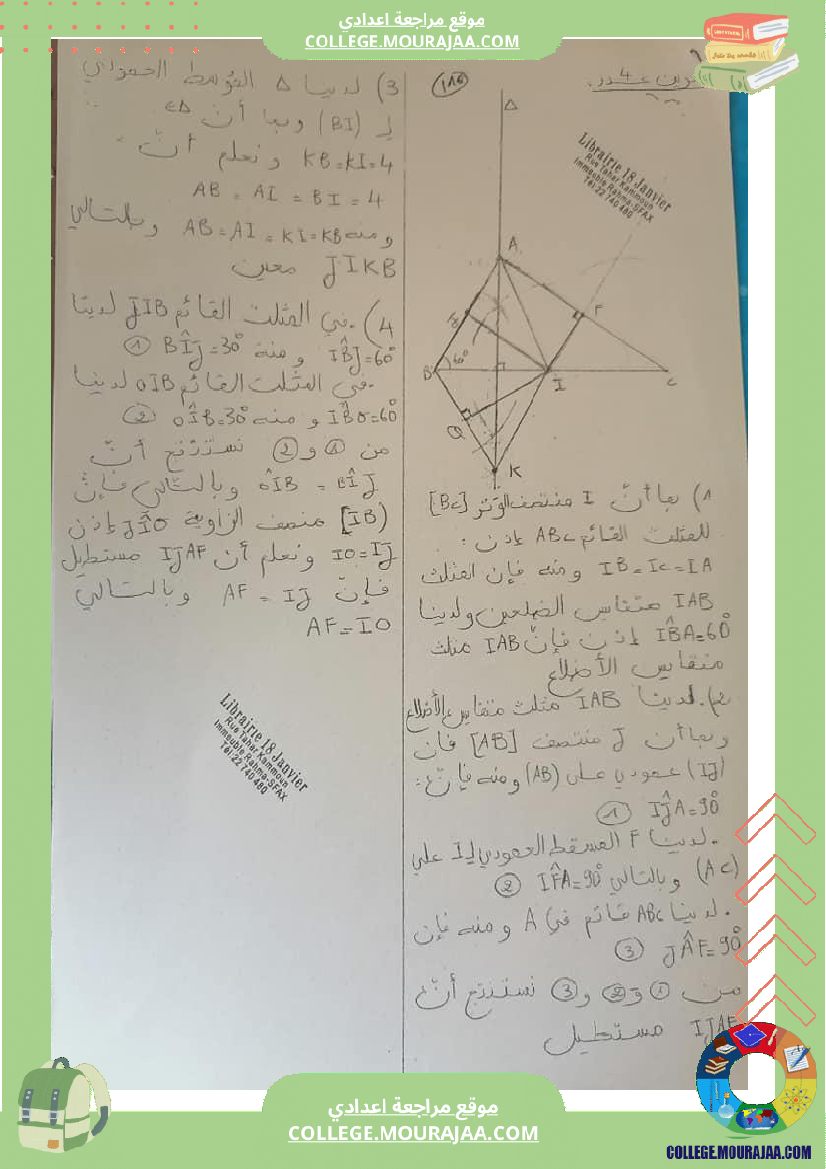 موقع مراجعة اعدادي
COLLEGE.MOURAJAA.COM
تمرين عـ4ـدد.
Δ
A
F
J
B
60°
I
C
O
K
Librairie 18 Janvier
Rue Taher Kammoun
Immeuble Rahma-SFAX
Tél:22 740 480
1) بما أنّ I منتصف الوتر [BC]
للمثلث القائم ABC إذن :
IB=IC=IA ومنه فإن المثلث
IAB متقايس الضلعين ولدينا
IB̂A=60° إذن فإنّ IAB مثلث
متقايس الأضلاع
2). لدينا IAB مثلث متقايس الأضلاع
وبما أن J منتصف [AB] فإن
(IJ) عمودي على (AB) ومنه فإنّ:
IĴA=90° ①
. لدينا F المسقط العمودي لـ I على
(AC) وبالتالي IF̂A=90° ②
. لدينا ABC قائم في A ومنه فإن
JÂF=90° ③
من ① و② و③ نستنتج أنّ
IJAF مستطيل
3) لدينا Δ الموسط العمودي
لـ (BI) وبما أن K∈Δ
KB=KI=4 ونعلم أنّ
AB=AI=BI=4
ومنه AB=AI=KI=KB وبالتالي
JIKB معين
4) .في المثلث القائم JIB لدينا
IB̂J=60° ومنه BÎJ=30° ①
.في المثلث القائم OIB لدينا
IB̂O=60° ومنه OÎB=30° ②
من ① و② نستنتج أنّ
BÎJ = OÎB وبالتالي فإنّ
[IB) منصف الزاوية JÎO إذن
IO=IJ ونعلم أن IJAF مستطيل
فإنّ AF=IJ وبالتالي
AF=IO
Librairie 18 Janvier
Rue Taher Kammoun
Immeuble Rahma-SFAX
Tél:22 740 480
موقع مراجعة اعدادي
COLLEGE.MOURAJAA.COM
COLLEGE.MOURAJAA.COM